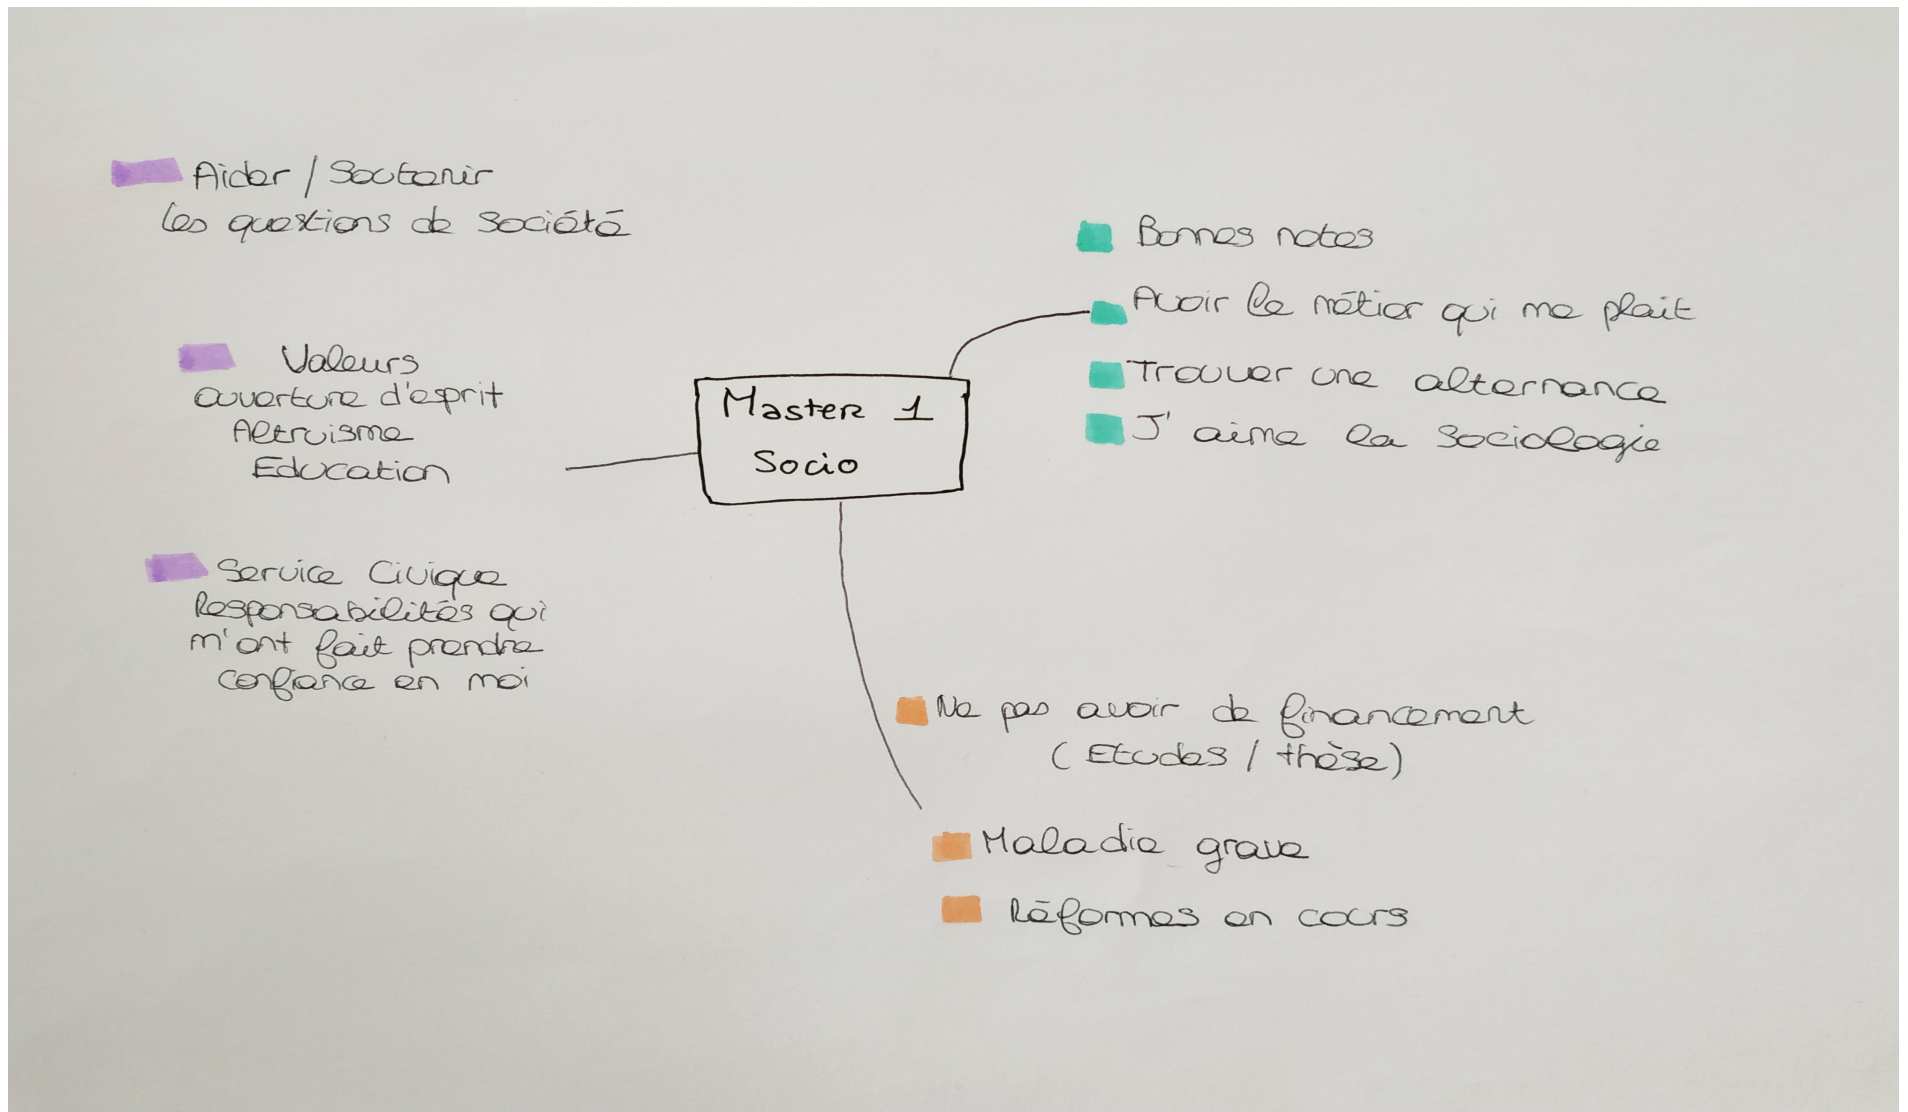 Aider / Soutenir
les questions de société
Valeurs
ouverture d'esprit
Altruisme
Education
Service Civique
Responsabilités qui
m'ont fait prendre
confiance en moi
Master 1
Socio
Bonnes notes
Avoir le métier qui me plait
Trouver une alternance
J'aime la sociologie
Ne pas avoir de financement
(Etudes / thèse)
Maladie grave
Réformes en cours